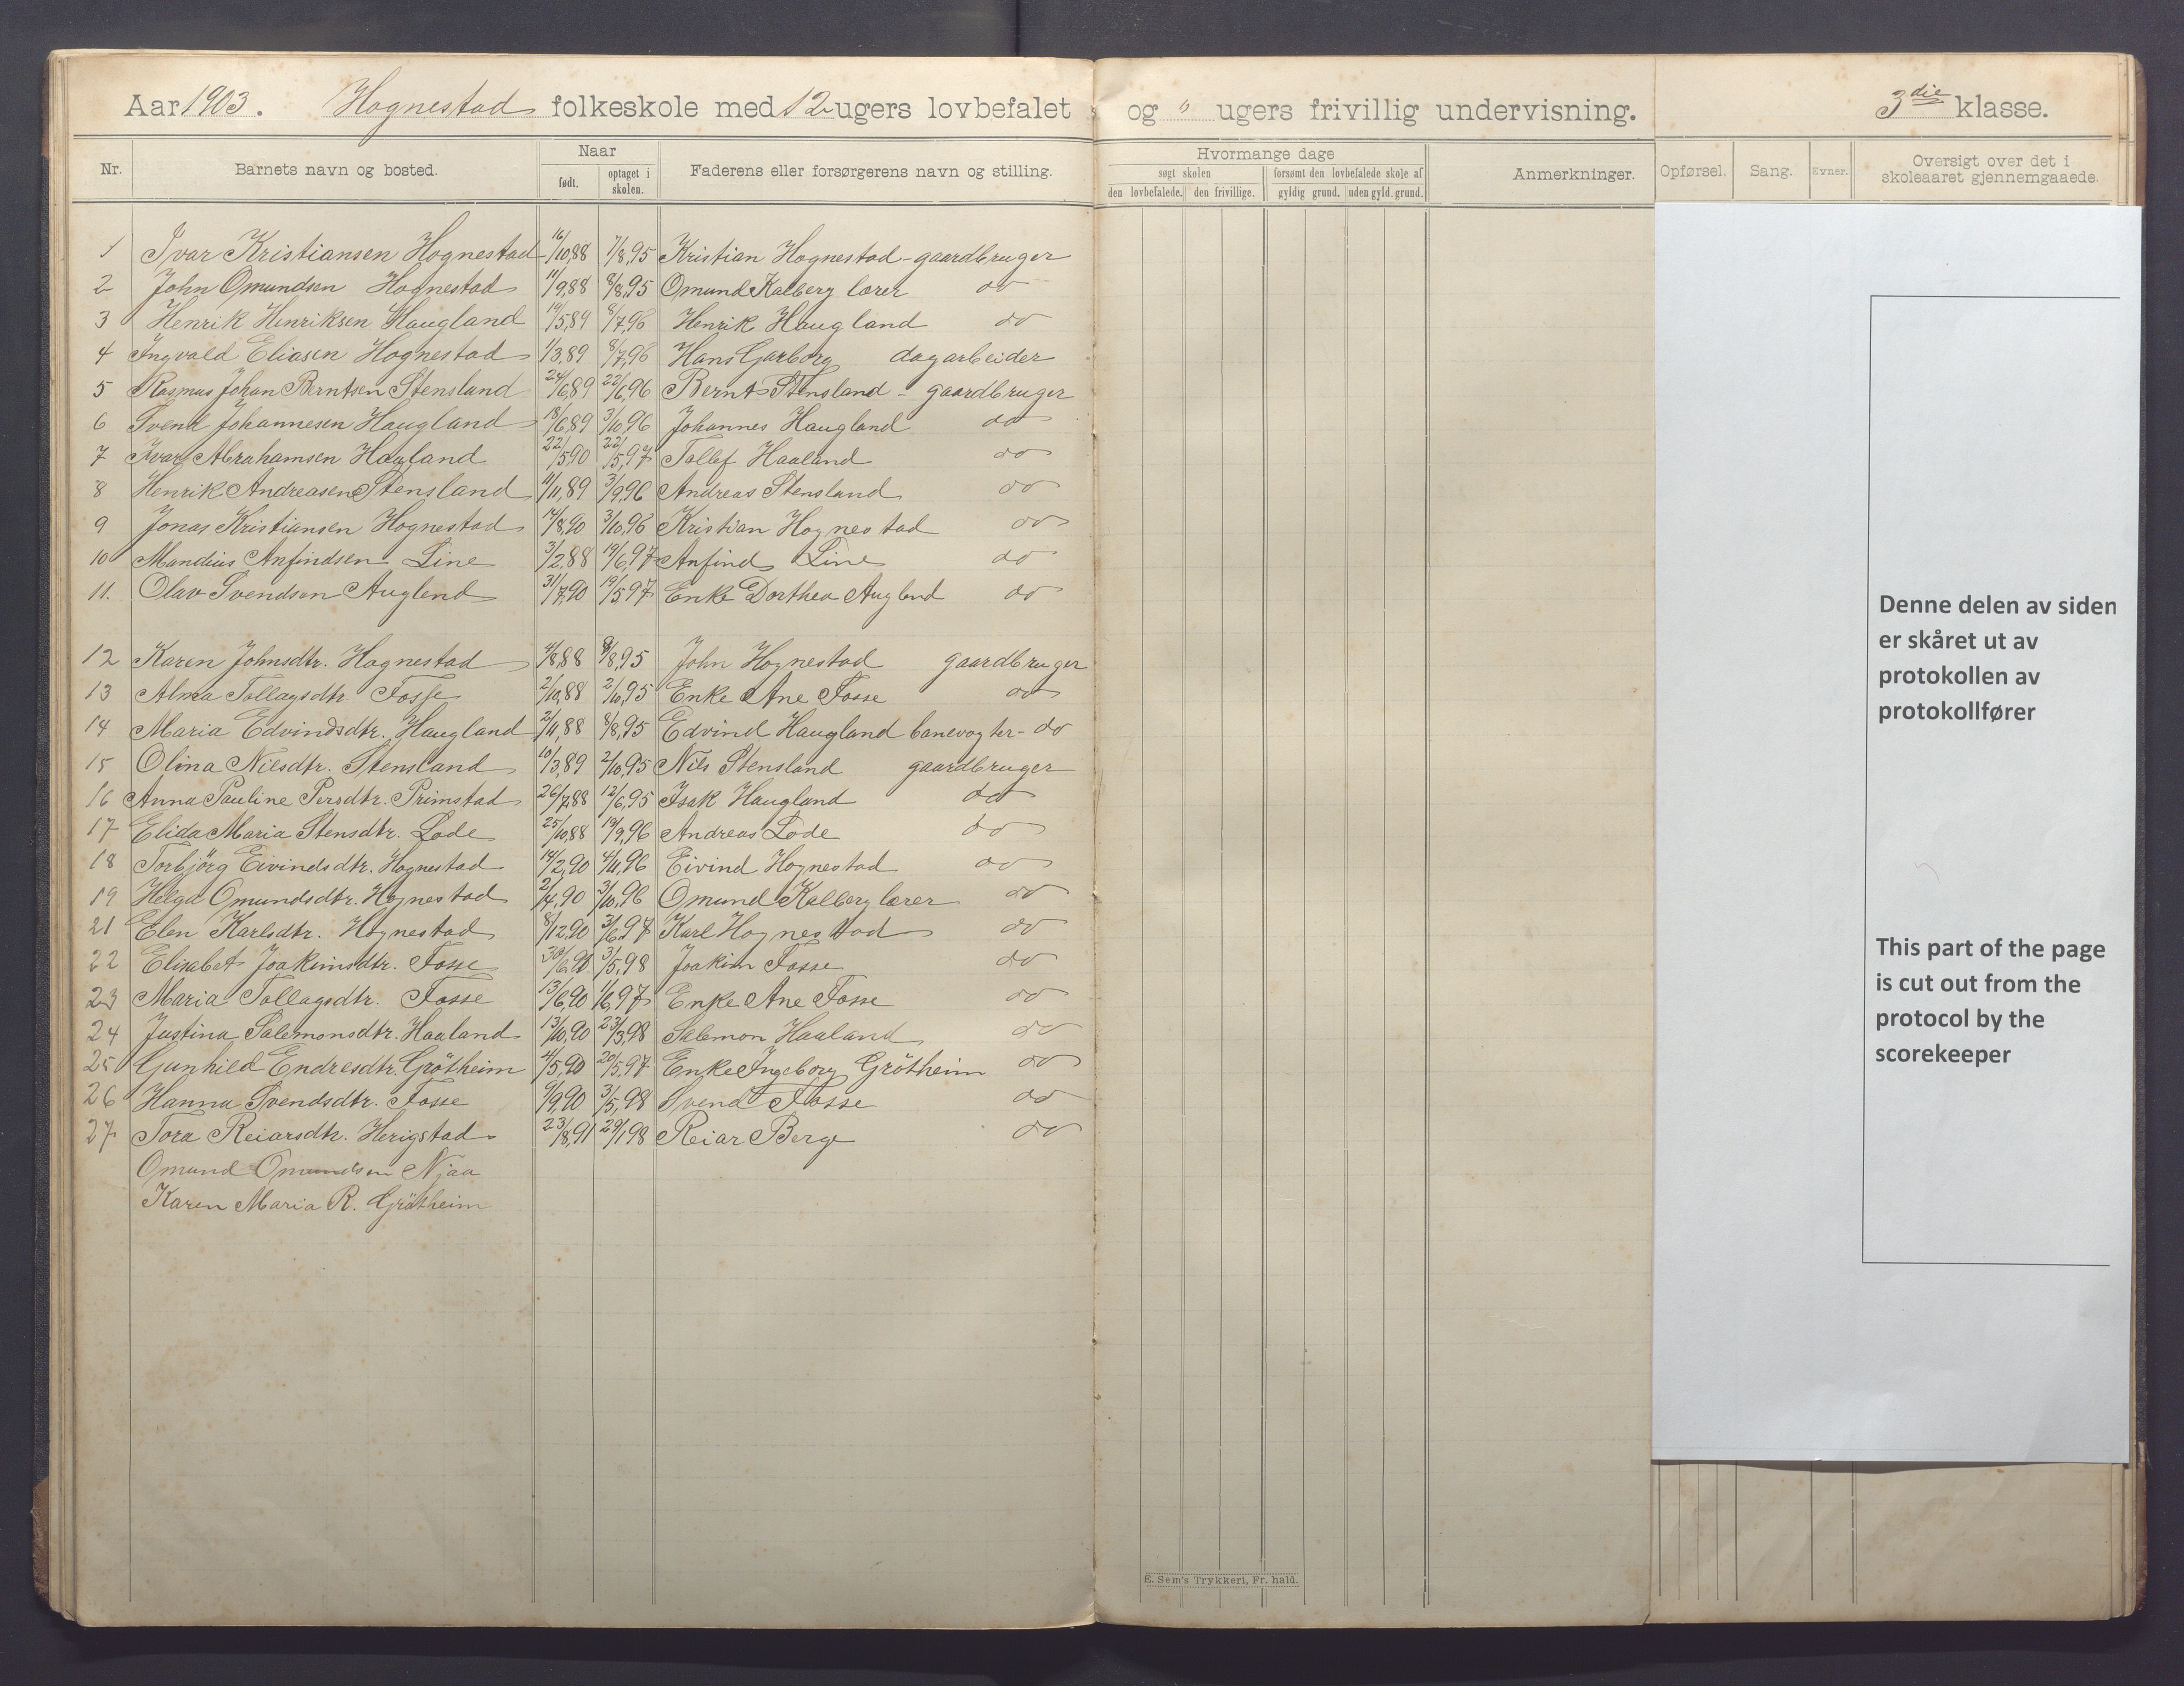 Aar 1903. Hognestad folkeskole med 12 ugers lovbefalet og 0 ugers frivillig undervisning. 3die klasse.
Nr. Barnets navn og bosted. Naar født. optaget i skolen. Faderens eller forsørgerens navn og stilling. Hvormange dage søgt skolen den lovbefalede. den frivillige. forsømt den lovbefalede skole af gyldig grund. uden gyld. grund. Anmerkninger. Opførsel. Sang. Evner. Oversigt over det i skoleaaret gjennemgaaede.
1 Ivar Kristiansen Hognestad 16/10,88 7/8,95 Kristian Hognestad - gaardbruger
2 John Omundsen Hognestad 11/9,88 8/8,95 Omund Kalberg lærer do
3 Henrik Henriksen Haugland 19/5,89 8/7,96 Henrik Haugland do
4 Ingvald Eliasen Hognestad 1/3,89 8/7,96 Hans Garborg dagarbeider
5 Rasmus Johan Berntsen Stensland 24/6,89 22/6,96 Bernt Stensland - gaardbruger
6 Svend Johannesen Haugland 18/6,89 3/10,96 Johannes Haugland do
7 Ivar Abrahamsen Haaland 22/5,90 22/5,97 Tollef Haaland do
8 Henrik Andreasen Stensland 11/11,89 3/9,96 Andreas Stensland do
9 Jonas Kristiansen Hognestad 14/8,90 3/10,96 Kristian Hognestad do
10 Mandius Anfindsen Line 3/2,88 19/6,97 Anfind Line do
11. Olav Svendsen Auglend 31/7,90 19/5,97 Enke Dorthea Auglend do
12 Karen Johnsdtr. Hognestad 4/8,88 8/8,95 John Hognestad gaardbruger
13 Alma Tollagsdtr. Fosse 2/10,88 2/10,95 Enke Ane Fosse do
14 Maria Edvindsdtr. Haugland 2/11,88 8/8,95 Edvind Haugland banevogter - do
15 Olina Nilsdtr. Stensland 10/3,89 2/10,95 Nils Stensland gaardbruger
16 Anna Pauline Persdtr. Primstad 26/7,88 12/6,95 Isak Haugland do
17 Elida Maria Stensdtr. Lode 25/10,88 19/9,96 Andreas Lode do
18 Torbjörg Eivindsdtr. Hognestad 14/2,90 4/11,96 Eivind Hognestad do
19 Helga Omundsdtr. Hognestad 2/4,90 3/10,96 Omund Kalberg lærer do
21 Elen Karlsdtr. Hognestad 8/12,90 3/6,97 Karl Hognestad do
22 Elisabet Joakimsdtr. Fosse 30/6,90 3/5,98 Joakim Fosse do
23 Maria Tollagsdtr. Fosse 13/6,90 1/6,97 Enke Ane Fosse do
24 Justina Salemonsdtr. Haaland 13/10,90 23/3,98 Salemon Haaland do
25 Gunhild Endresdtr. Grötheim 4/5,90 20/5,97 Enke Ingeborg Grötheim do
26 Hanna Svendsdtr. Fosse 9/9,90 3/5,98 Svend Fosse do
27 Tora Reiarsdtr. Herigstad 23/8,91 29/1,98 Reiar Berge do
Omund Omundsen Njaa
Karen Maria R. Grötheim
E. Sem's Trykkeri, Fr. hald.
Denne delen av siden
er skåret ut av
protokollen av
protokollfører
This part of the page
is cut out from the
protocol by the
scorekeeper